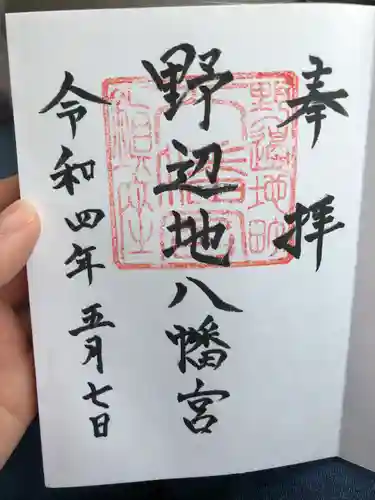 奉拝
野辺地八幡宮
令和四年五月七日